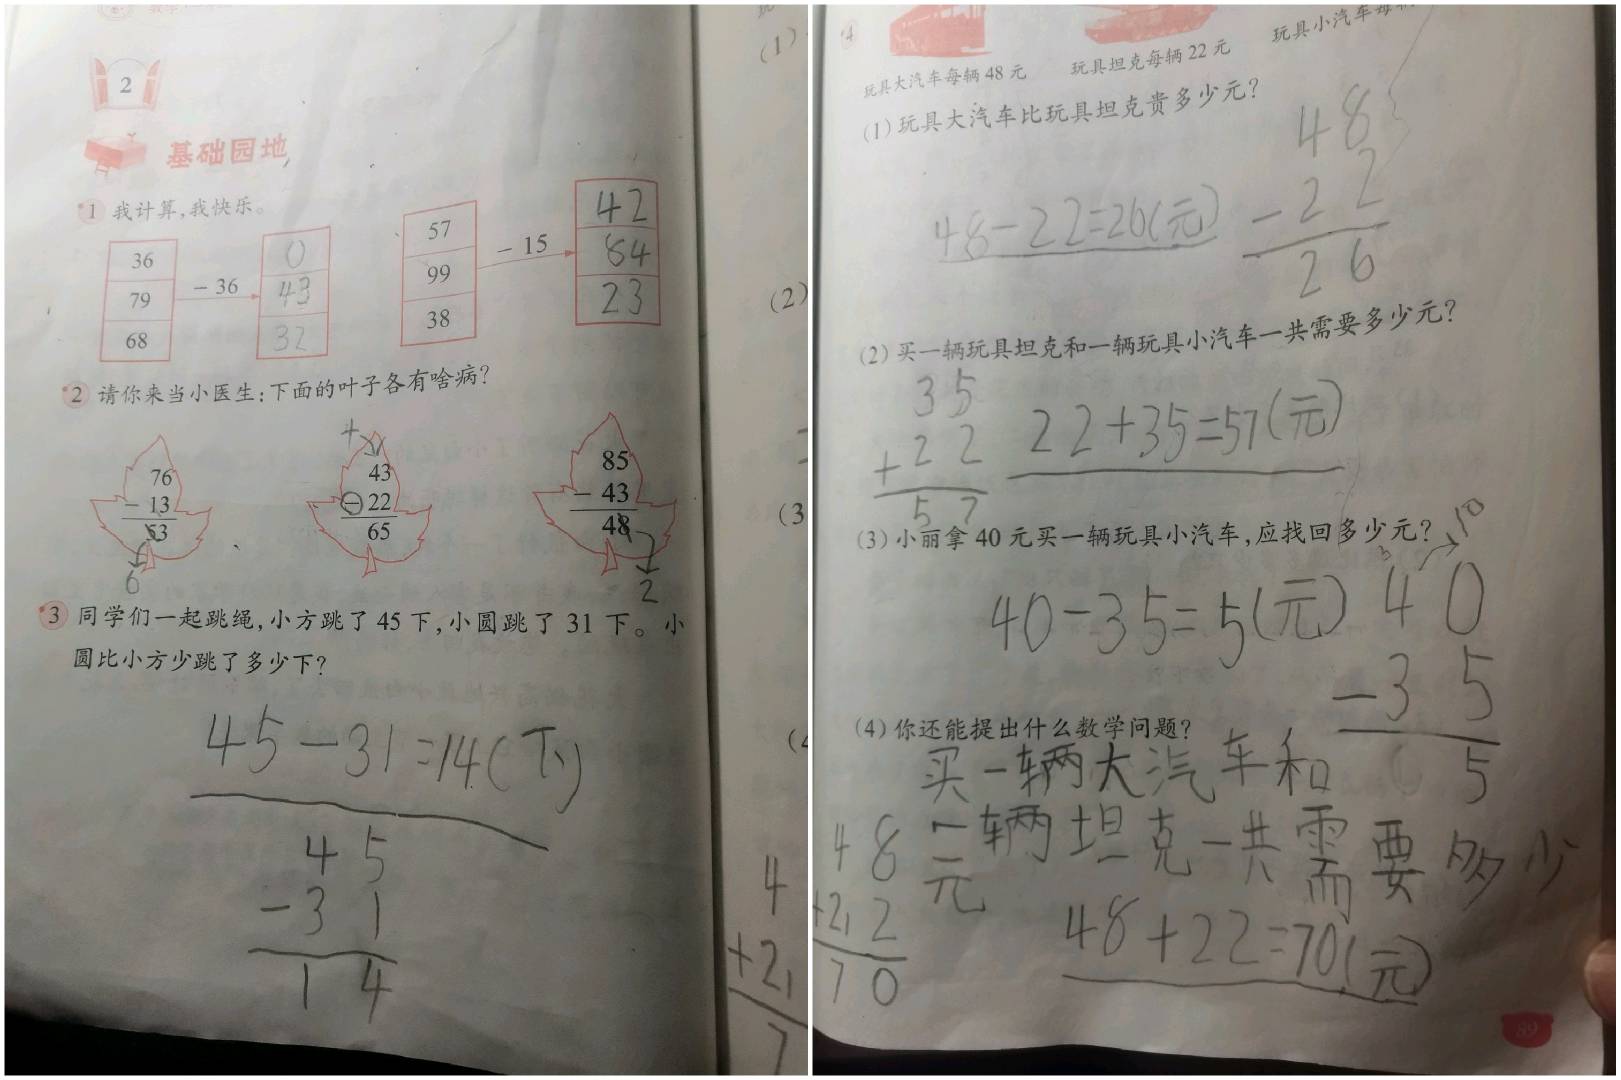 2
基础园地
1 我计算,我快乐。
36
79
68
- 36
0
43
32
57
99
38
- 15
42
84
23
2 请你来当小医生:下面的叶子各有啥病?
76
- 13
53
6
+
43
- 22
65
85
- 43
48
2
3 同学们一起跳绳,小方跳了 45 下,小圆跳了 31 下。小
圆比小方少跳了多少下?
45-31=14(下)
45
-31
14
(1)
(2)
(3
(4
4
+21
7
4
玩具大汽车每辆 48 元
玩具坦克每辆 22 元
玩具小汽车每辆
(1) 玩具大汽车比玩具坦克贵多少元?
48-22=26(元)
48
-22
26
(2) 买一辆玩具坦克和一辆玩具小汽车一共需要多少元?
35
+22
57
22+35=57(元)
(3) 小丽拿 40 元买一辆玩具小汽车,应找回多少元?
40-35=5(元)
3 10
40
-35
5
(4) 你还能提出什么数学问题?
买一辆大汽车和
一辆坦克一共需要多少
元
48
+212
70
48+22=70(元)
89